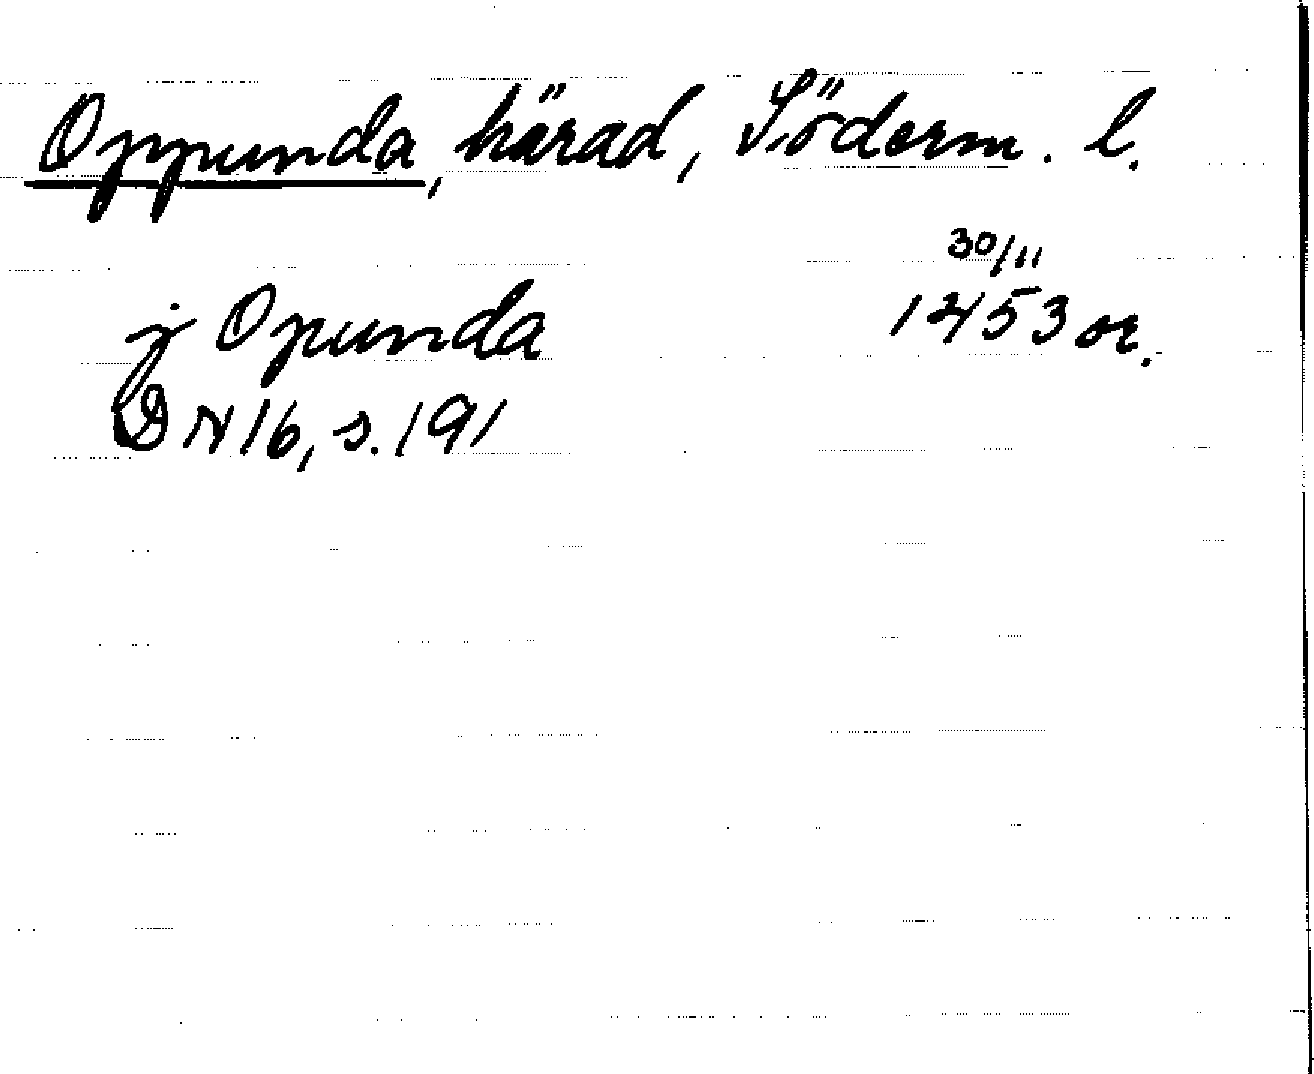 Oppunda, härad, Söderm. l.
30/11
j Opunda 1453 or.
DN 16, s. 191